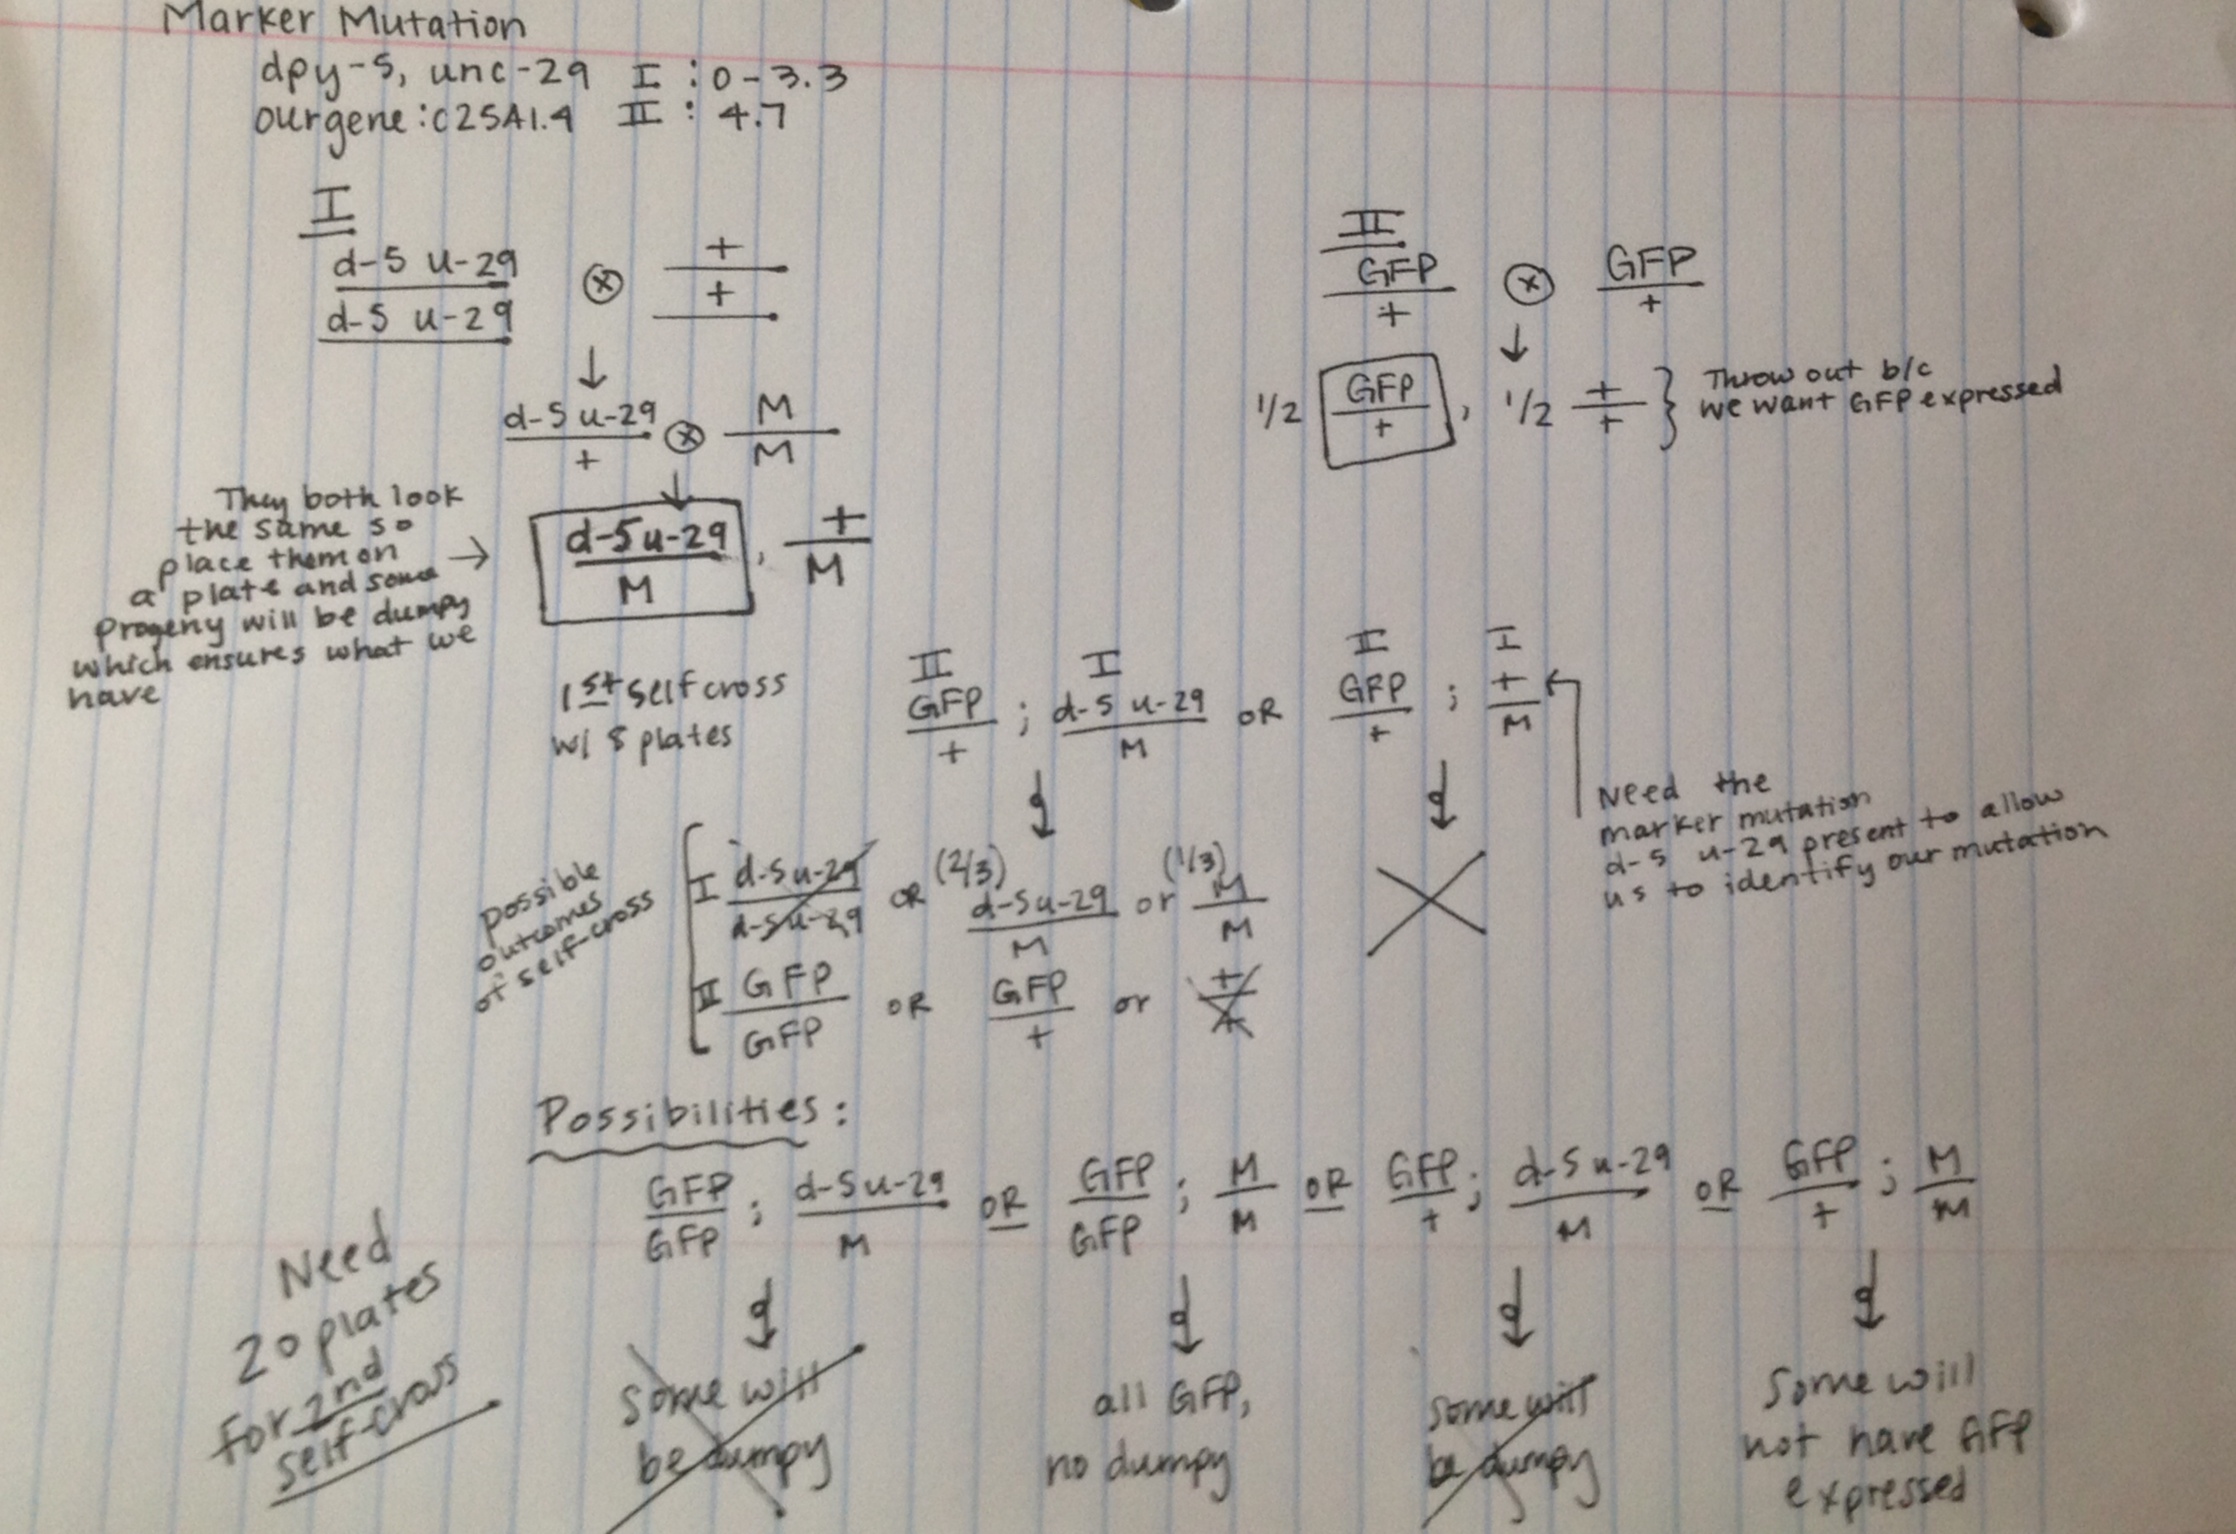 Marker Mutation
dpy-5, unc-29 I : 0-3.3
ourgene: C25A1.4 II : 4.7
I
d-5 u-29
d-5 u-29
⊗
+
+
↓
d-5 u-29
+
⊗
M
M
↓
d-5 u-29
M
,
+
M
They both look
the same so
place them on →
a plate and some
progeny will be dumpy
which ensures what we
have
II
GFP
+
⊗
GFP
+
↓
1/2
GFP
+
, 1/2
+
+
} Throw out b/c
we want GFP expressed
1st self cross
w/ 8 plates
II I
GFP ; d-5 u-29
+ M
OR
II I
GFP ; +
+ M
Need the
marker mutation
d-5 u-29 present to allow
us to identify our mutation
possible
outcomes
of self-cross
I
d-5 u-29
d-5 u-29
OR
(2/3)
d-5 u-29
M
or
(1/3)
M
M
II
GFP
GFP
OR
GFP
+
or
+
+
Possibilities:
GFP ; d-5 u-29
GFP M
OR
GFP ; M
GFP M
OR
GFP ; d-5 u-29
+ M
OR
GFP ; M
+ M
Need
20 plates
for 2nd
self-cross
Some will
be dumpy
all GFP,
no dumpy
some will
be dumpy
Some will
not have GFP
expressed